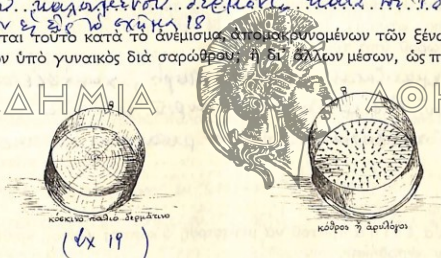 εἰς τὸ σχῆμα 18
ται τοῦτο κατὰ τὸ ἀνέμισμα, ἀπομακρυνομένων τῶν ξένω
ν ὑπὸ γυναικὸς διὰ σαρώθρου; ἢ δι' ἄλλων μέσων, ὡς π
ΔΗΜΙΑ ΑΘΗ
κόσκινο παλιὸ δερμάτινο
κόθρος ἢ ἀρυλόγος
(Σχ 19)